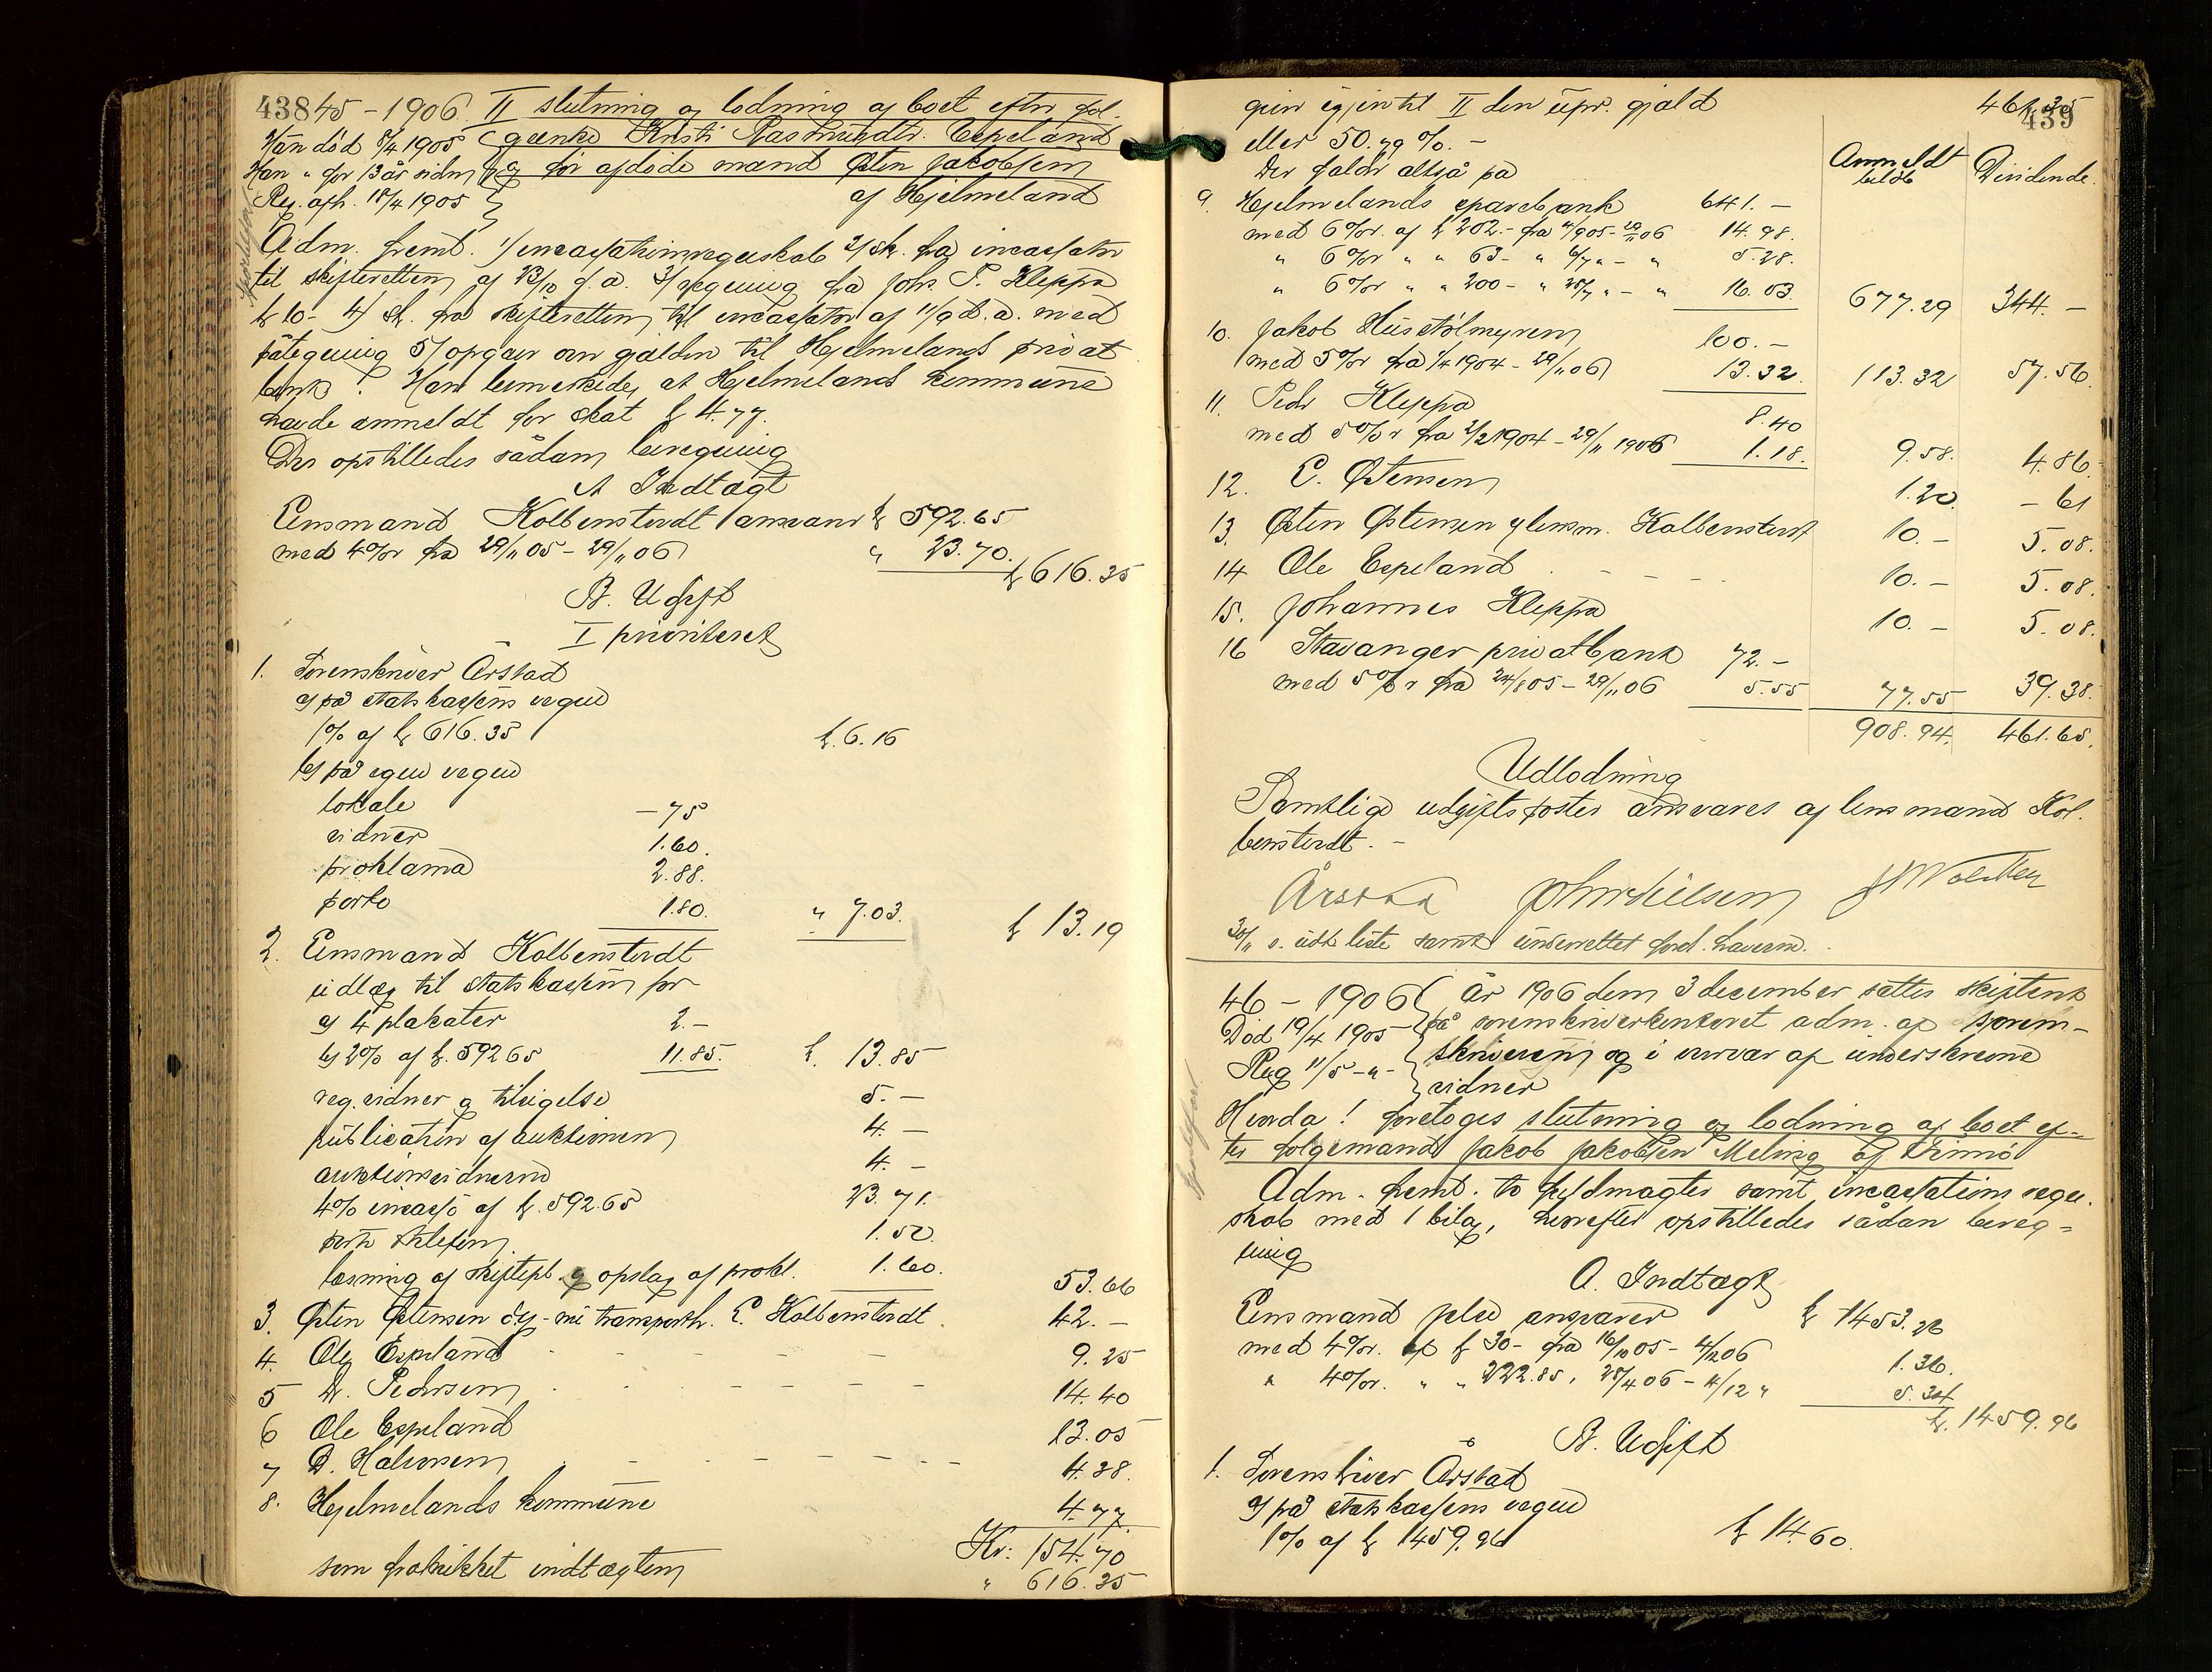 438
45 – 1906. II slutning og lodning af boet efter føl-
Hun død 8/4 1905 geenke Kristi Rasmusdtr. Espeland
Han " for 13 år siden og før afdøde mand Østen Jakobsen
Reg. afh. 18/4 1905 af Hjelmeland
Adm. fremt. 1/ incassationsregnskab 2/ sk. fra incassator
til skifteretten af 23/10 d. a. 3/ regning fra Johs. P. Kleppa
kr 10- 4/ sk. fra skifteretten til incassator af 11/9 d. a. med
påtegning 5/ opgave over gjælden til Hjelmelands privat
bank. Han bemerkede, at Hjelmelands kommune
havde anmeldt for skat kr 4.77.
Der opstilledes sådan beregning
A Indtægt
Lensmand Kolbenstvedt ansvarer kr 592.65
med 4% r fra 29/11 05 – 29/11 06 " 23.70. kr 616.35
B. Udgift
I prioriteret
1. Sorenskriver Årstad
a) på statskassens vegne
1% af kr 616.35 kr. 6.16
b) på egne vegne
lokale – 75
vidner 1.60.
proklama 2.88.
porto 1.80. " 7.03. kr 13.19
2. Lensmand Kolbenstvedt
udlæg til statskassen for
a) 4 plakater 2.–
b) 2% af kr. 592 65 11.85. kr. 13.85
reg. vidner og tilsigelse 5. –
publication af auktionen 4. –
auktionsvidnerne 4. –
4% incasso af kr. 592.65 23.71.
porto telefon 1.50.
læsning af skiftepl. og opslag af prokl. 1.60. 53.66
3. Østen Østensen dy- nu transporth. E. Kolbenstvedt 42. –
4. Ole Espeland 9.25
5 Dr. Pedersen 14.40
6 Ole Espeland 13.05
7 D. Halvorsen 4.38.
8. Hjelmelands kommune 4.77.
Kr: 154.70
som fratrukket indtægten " 616.35
439
giver igjen til II den upr. gjæld 461.65
eller 50.79 %. –
Der falder altså på Anmeldt beløb Dividende.
9. Hjelmelands sparebank 641. –
med 6% r. af kr 202.– fra 905 – 29/11 06 14.98.
" 6% r " " 63- " 6/7 " – " 5.28.
" 6% r " " 200- " 25/7 " – " 16.03. 677.29 344. –
10. Jakob Husstølmyren 100. –
med 5% r fra 1/4 1904 – 29/11 06 13.32. 113.32 57.56.
11. Peder Kleppa 8.40
med 5% r fra 2/2 1904 – 29/11 1906 1.18. 9.58. 4.86
12. E. Østensen 1.20. – 61
13. Østen Østensen v lensm. Kolbenstvedt 10. – 5.08.
14 Ole Espeland 10. – 5.08.
15. Johannes Kleppa 10. – 5.08.
16 Stavanger privatbank 72. –
med 5% r fra 24/8 05 – 29/11 06 5.55 77.55 39.38.
908.94. 461.65.
Udlodning
Samtlige udgiftsposter ansvares af lensmand Kol-
benstvedt. –
Årstad
30/11 s. udt liste samt underrettet ford. haverne.
46 – 1906 År 1906 den 3 december sattes skifteret
Død 19/4 1905 på sorenskriverkontoret adm. af soren-
Reg 11/5 -"- skriveren og i overvær af underskrevne
vidner
Hvorda! foretoges slutning og lodning af boet ef-
ter følgemand Jakob Jakobsen Meling af Finnø
Adm. fremt. to fuldmagter samt incassationsregn.
skab med 1 bilag, hvorefter opstilledes sådan bereg-
ning
A. Indtægt
Lensmand ansvarer kr 1453.26
med 4% r. af kr 30- fra 16/10 05 – 4/12 06 1.36.
" 4% r. " " 222.85, 25/4 06 – 4/12 " 5.34
kr. 1459.96
B. Udgift
1. Sorenskriver Årstad
a) på statskassens vegne
1% af kr 1459.96 kr 14.60.